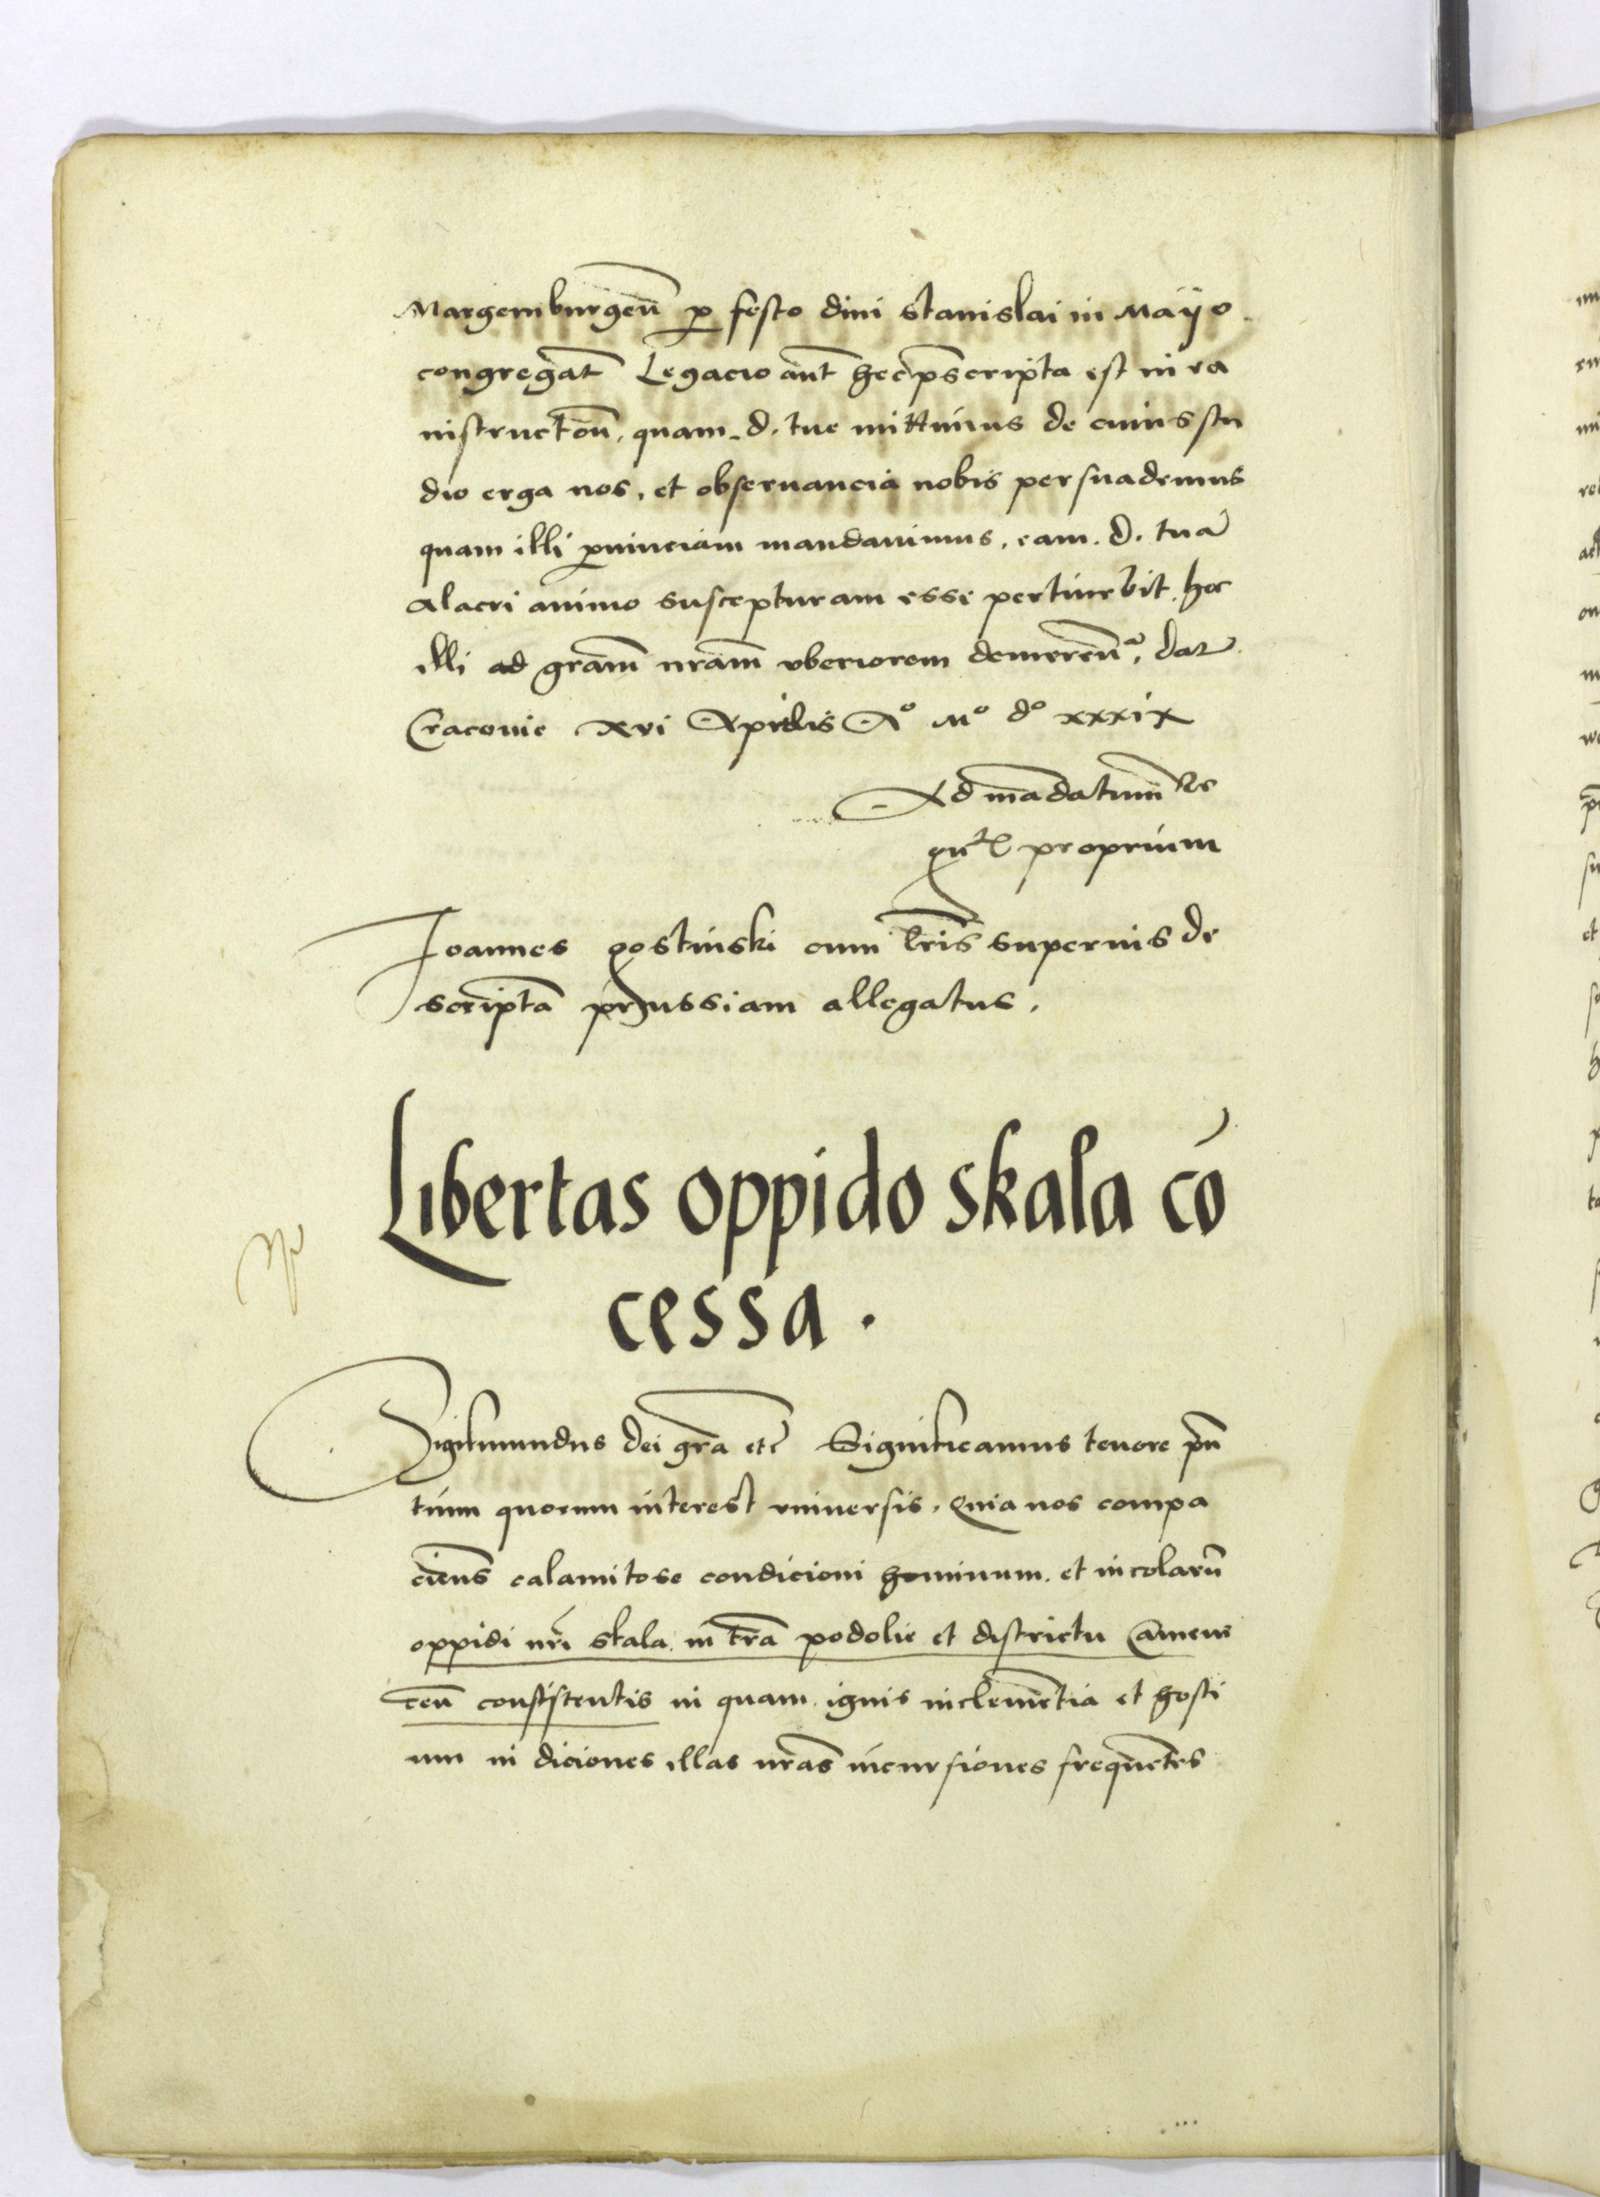 Margemburgen̄ p festo diui Stanislai in Mayo.
congregat̄ Legacio aut̄ hec p̄scripta est in ea
instructōn̄, quam. d. tue mittimus de cuius stu
dio erga nos, et obseruancia nobis persuademus
quam illi ꝓuinciam mandauimus, eam. d. tuā
alacri animo suscepturam esse pertinebit, hoc
illi ad gram̄ nram̄ vberiorem demeren̄, Dat
Cracouie xvi Aprilis Aº Mº dº xxxix
Ad mādatum Re
proprium
Joannes gostinski cum lr̄is supernis de
scriptā prussiam allegatus.
Libertas oppido skala cō
cessa.
Sigismundus dei gr̄a etc̄ Significamus tenore pn̄
tium quorum interest vniuersis. Quia nos compa
ciens̄ calamitose condicioni hominum. et incolarū
oppidi nr̄i skala in tr̄a podolie et districtu Camene
cen̄ consistentis in quam ignis inclemētia et hosti
um in diciones illas nr̄as incursiones frequētes